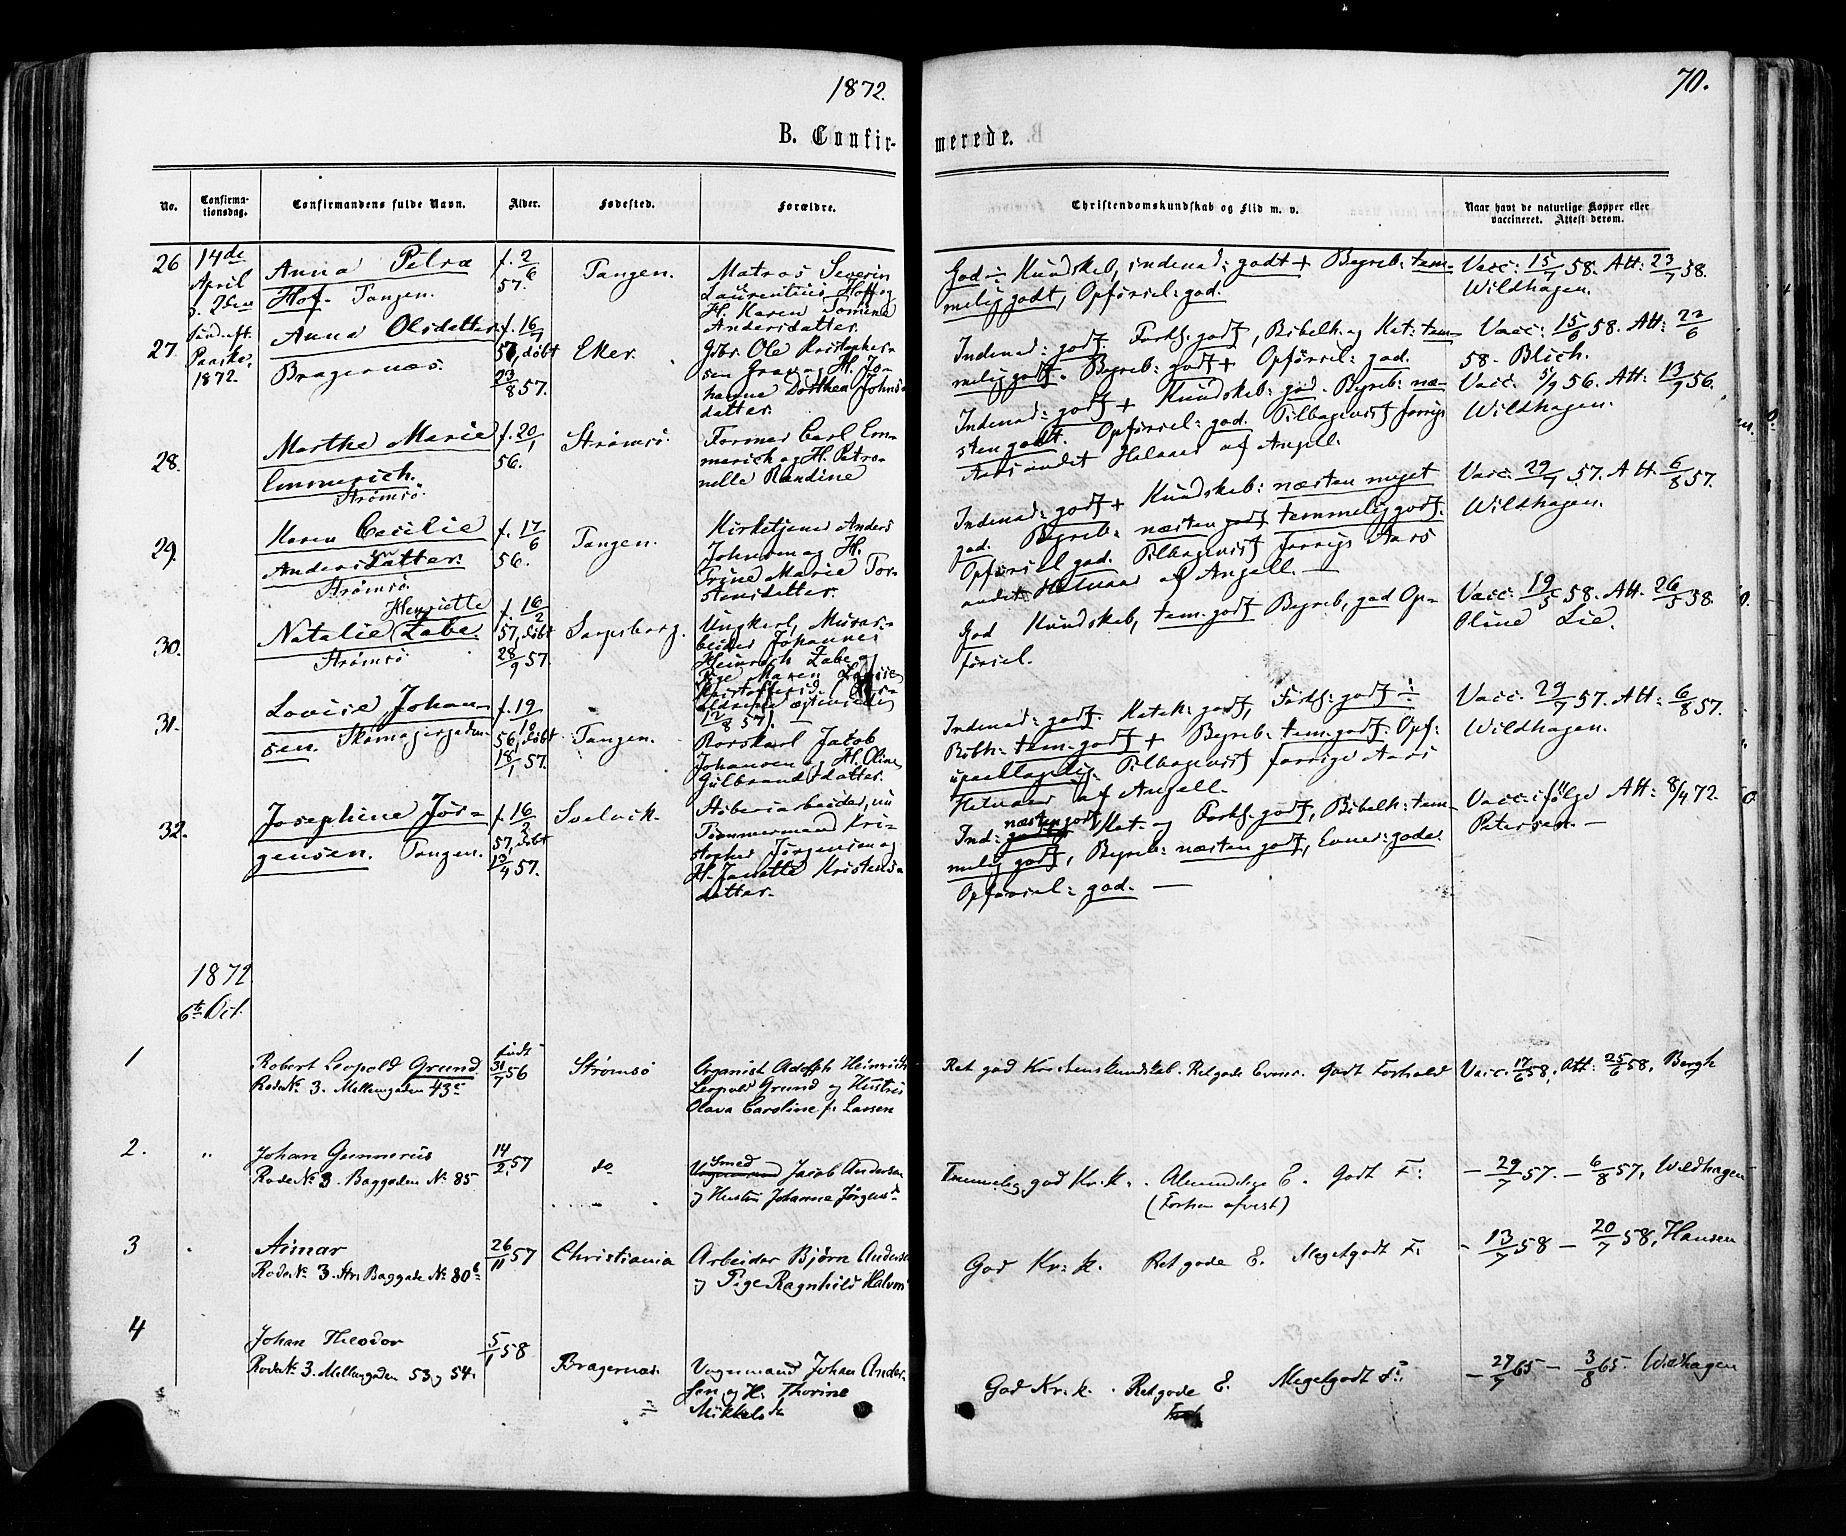 1872.
70.
B. Confir-
merede.
No.
Confirma-
tionsdag.
Confirmandens fulde Navn.
Alder.
Fødested.
Forældre.
Christendomskundskab og Flid m. v.
Naar havt de naturlige Kopper eller
vaccineret. Attest derom.
26
14de
April
s. 2den
Søndag eft.
Paaske
1872.
Anna Petra
Hof. Tangen.
f. 2/6
57.
Tangen.
Matros Severin
Laurentius Hoff og
H. Karen Tomine
Andersdatter.
God ÷ Kundskab, indenad: godt + Begreb: tem-
melig godt, Opførsel: god.
Vacc: 15/7 58. Att: 23/7 58.
Wildhagen.
27.
Anna Olsdatter
Bragernæs.
f. 16/7
57, døbt
23/8 57.
Eker.
Gbr. Ole Kristophers-
sen Gravæ H. Jo-
hanne Dorthea Johns-
datter.
Indenad: godt. Forkl. godt, Bibelh. og Kat: tem-
melig godt. Begreb: godt + Opførsel: god.
Vacc: 15/6 58. Att: 22/6
58. Blich.
28.
Marthe Marie
Emmerich.
Strømsö.
f. 20/1
56.
Strømsö.
Former Carl Em-
merich og H. Petro-
nelle Randine
Indenad: godt + Kundskab: god. Begreb: næ-
sten godt. Opførsel: god. Tilbagevist forrige
Aars andet Halvaar af Angell.
Vacc: 5/9 56. Att: 13/9 56.
Wildhagen.
29.
Karen Cecilie
Andersdatter.
Strømsö.
f. 17/6
56.
Tangen.
Kirketjener Anders
Johnsen og H.
Trine Marie Tor-
stensdatter.
Indenad: godt + Kundskab: næsten meget
god. Begreb: næsten godt temmelig godt.
Opførsel god. Tilbagevist forrige Aars
andet Halvaar af Angell. —
Vacc: 29/7 57. Att: 6/8 57.
Wildhagen.
30.
Henriette
Natalie Zabe
Strømsö
f. 16/2
57, døbt
28/9 57.
Sarpsborg.
Ungkarl, Murar-
beider Johannes
Heinrich Zabe og
Pige Maren Lovise
12/8 57).
God Kundskab, tem. godt Begreb, god Op-
førsel.
Vacc: 19/5 58. Att. 26/5 58
Oline Lie.
31.
Lovise Johan-
sen. Skomagergaden.
f. 19/12
56, døbt
18/1 57.
Tangen.
Rorskarl Jakob
Johansen og H. Oline
Gulbrandsdatter.
Indenad: godt. Katek: godt, Forkl: godt ÷
Bibh: tem. godt + Begreb: tem. godt. Opf:
upaaklagelig. Tilbagevist forrige Aars
Halvaar af Angell.
Vacc: 29/7 57. Att: 6/8 57.
Wildhagen.
32.
Josephine Jør-
gensen. Tangen.
f. 16/2
57, døbt
13/4 57.
Svelvik.
Støberiarbeider, nu
Tømmermand Kri-
stopher Jørgensen og
H. Janette Kristens-
datter.
næsten godt
Ind: godt Kat. og Forkl. godt, Bibelh: tem-
melig godt, Begreb: næsten godt, Evner: gode.
Opførsel: god. —
Vacc: ifølge Att: 8/4 72.
Petersen. —
1872
6te Oct.
1
Robert Leopold Grund
Rode No 3. Mellemgaden 43c
født
31/7 56
Strømsö
Organist Adolph Heinrich
Leopold Grund og Hustru
Olava Caroline f. Larsen
Ret god Kristenskundskab. Ret gode Evner. Godt Forhold
Vacc. 17/6 58, Att: 25/6 58, Bergh
2.
"
Johan Gunnerius
Rode No 3. Baggaden No 85
14/2 57
do
Smed
Vognmand Jacob Andersen
og Hustru Johanne Jørgensd
Temmelig god Kr. k. . Almindelige E. Godt F:
(Forhen afvist)
— 29/7 57. — 6/8 57, Wildhagen
3
Aimar
Rode No 3. Str. Baggade No 80b
26/11 57
Christiania
Arbeider Björn Anderse
og Pige Ragnhild Halvors
God Kr. k. Ret gode E. Meget godt F:
— 13/7 58 — 20/7 58, Hansen
4
Johan Theodor
Rode No 3. Mellemgaden 53 og 54.
5/1 58
Bragernæs.
Vognmand Johan Ander-
sen og H: Thorine
Mikkelsd
God Kr. k. . Ret gode E. Meget godt F:
— 27/7 65 — 3/8 65. Wildhagen